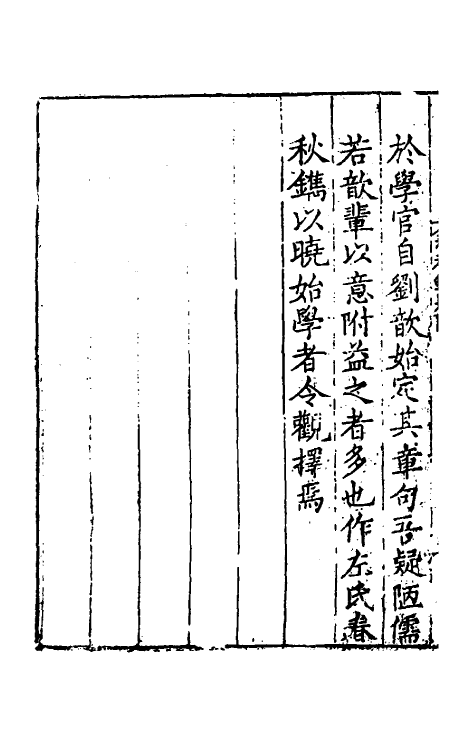 於學官自劉歆始定其章句吾疑陋儒
若歆輩以意附益之者多也作左氏春
秋鐫以曉始學者令觀擇焉